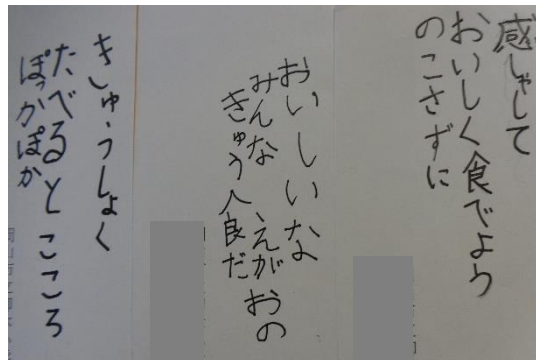 感しゃして
おいしく食でよう
のこさずに
おいしいな
みんな えがおの
きゅう食だ
きゅうしょく
たべるとこころ
ぽっかぽか